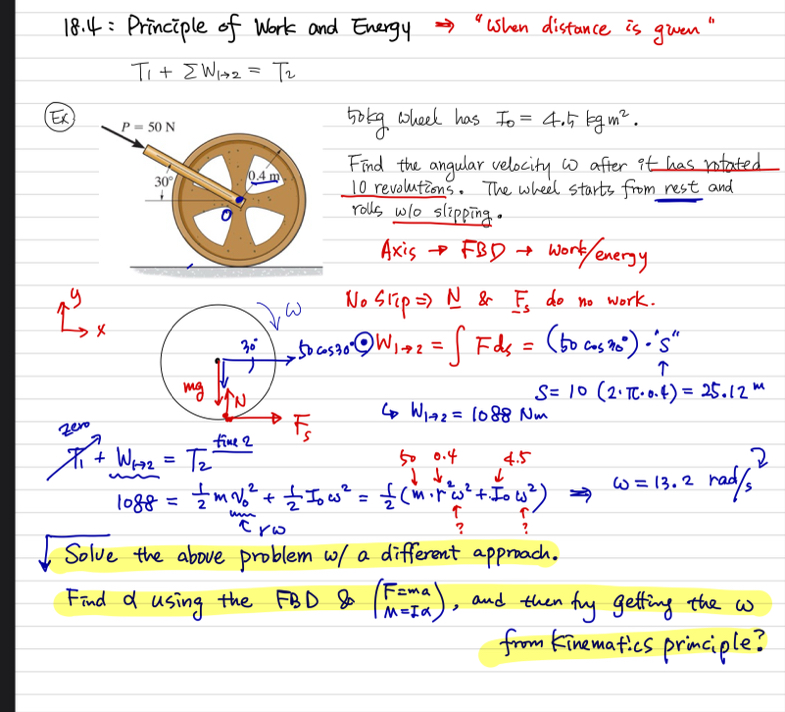 18.4: Principle of Work and Energy ⇒ "When distance is given"
T₁ + ΣW₁→₂ = T₂
Ex
P = 50 N
30°
0.4 m
O
50kg wheel has I₀ = 4.5 kg m².
Find the angular velocity ω after it has rotated
10 revolutions. The wheel starts from rest and
rolls w/o slipping.
Axis → FBD → work/energy
No Slip ⇒ N & Fs do no work.
y
x
ω
30°
50 cos30°
mg
N
Fs
W₁→₂ = ∫ F ds = (50 cos 30°) · "s"
↑
S = 10 (2·π·0.4) = 25.12 m
↳ W₁→₂ = 1088 Nm
zero
T₁ + W₁→₂ = T₂
time 2
50 0.4 4.5
1088 = ½ m v₀² + ½ I₀ ω² = ½ (m·r²ω² + I₀ ω²) ⇒ ω = 13.2 rad/s
rω
? ?
Solve the above problem w/ a different approach.
Find α using the FBD & (F=ma M=Iα), and then try getting the ω
from kinematics principle?